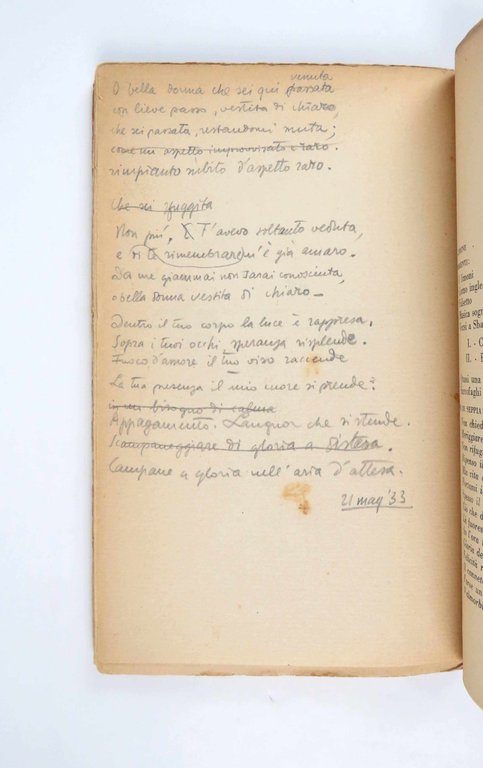 venuta
O bella donna che sei qui passata
con lieve passo, vestita di chiaro,
che sei passata, restandomi muta;
come un aspetto improvvisato e raro.
rimpianto subito d'aspetto raro.
Che sei sfuggita
Non più, T'avevo soltanto veduta,
e di te rimembrare m'è già amaro.
Da me giammai non sarai conosciuta,
o bella donna vestita di chiaro_
Dentro il tuo corpo la luce è rappresa.
Sopra i tuoi occhi speranza risplende.
Fuoco d'amore il tuo viso raccende
La tua presenza il mio cuore si prende:
in un bisogno di calma
Appagamento. Languor che si stende.
Scampaneggiare di gloria a distesa.
Campane a gloria nell'aria d'attesa.
21 mag '33
I. - C
II. - F
SEPPIA